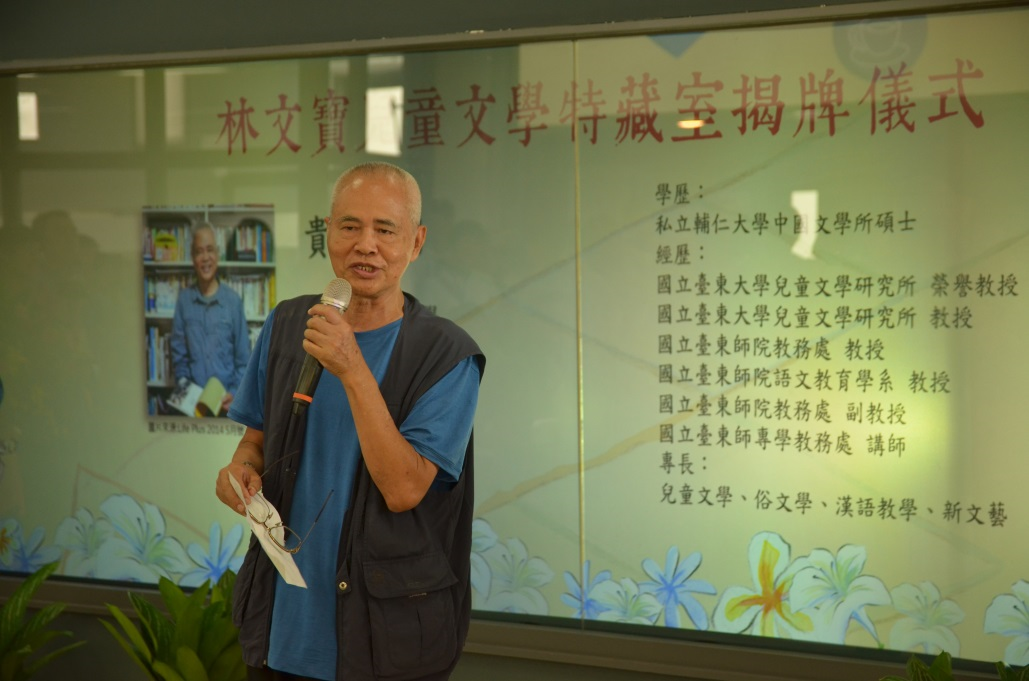 林文寶 童文學特藏室揭牌儀式
貴
圖片來源Life Plus 2014 5月號
學歷：
私立輔仁大學中國文學所碩士
經歷：
國立臺東大學兒童文學研究所 榮譽教授
國立臺東大學兒童文學研究所 教授
國立臺東師院教務處 教授
國立臺東師院語文教育學系 教授
國立臺東師院教務處 副教授
國立臺東師專學教務處 講師
專長：
兒童文學、俗文學、漢語教學、新文藝